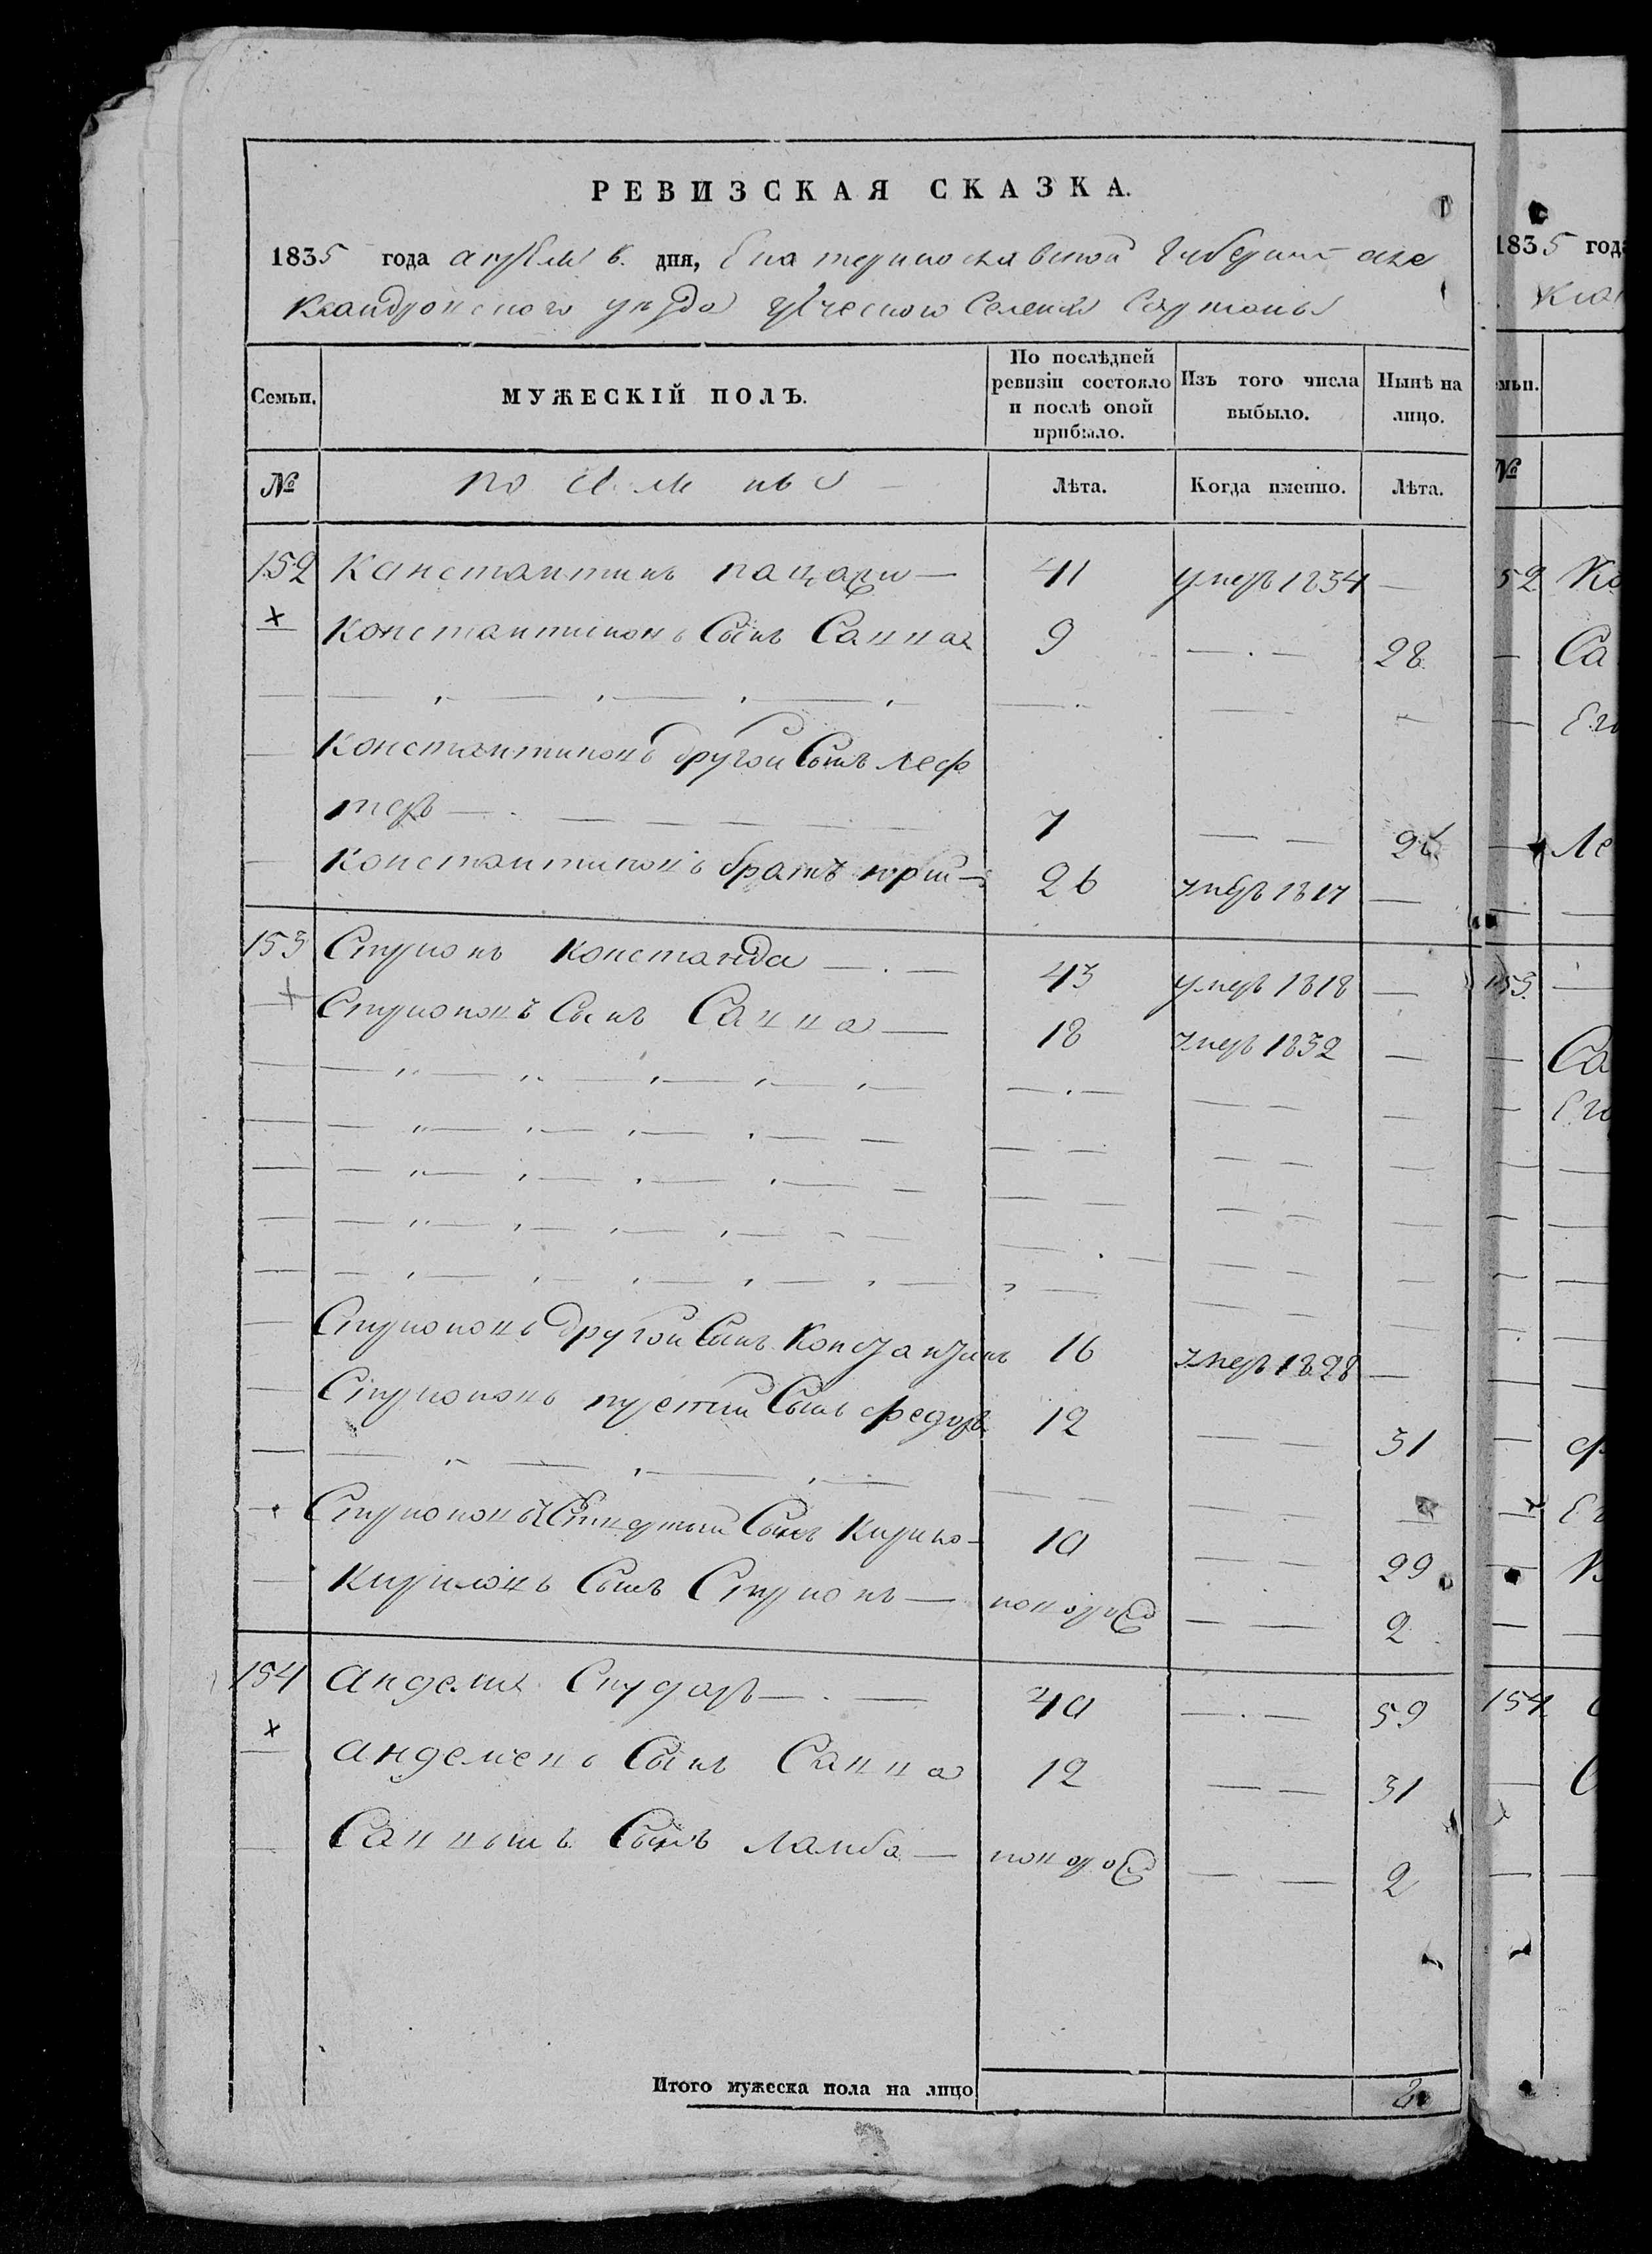 РЕВИЗСКАЯ СКАЗКА.
1835 года апреля 6. дня, Екатеринославской Губернии Але
ксандровского уезда греческого Селения Сартаны
Семьи.
МУЖЕСКІЙ ПОЛЪ.
По послѣдней ревизіи состояло и послѣ оной прибыло.
Изъ того числа выбыло.
Нынѣ на лицо.
№
Лѣта.
Когда именно.
Лѣта.
152 Канстантинъ пацари — 41 умеръ 1834 —
Константиновъ Сынъ Сацца 9 — . — 28
Константиновъ другой Сынъ леф
теръ — . — 7 — — 26
Константиновъ братъ юрий — 26 умеръ 1817 —
153 Стирионъ Констанда — . — 43 умеръ 1818 —
Стирионовъ Сынъ Сацца — 18 умеръ 1832 —
Стирионовъ другой Сынъ Константинъ 16 умеръ 1828 —
Стирионовъ третий Сынъ федоръ 12 — — 31
Стирионовъ Сынъ Кирико — 10 — — 29
Сынъ Стирионъ — новорож — — 2
154 — . — 40 — . — 59
Сынъ Сацца 12 — — 31
Сынъ ламбо — новорож — — 2
Итого мужеска пола на лицо
1835 года
152
153
154